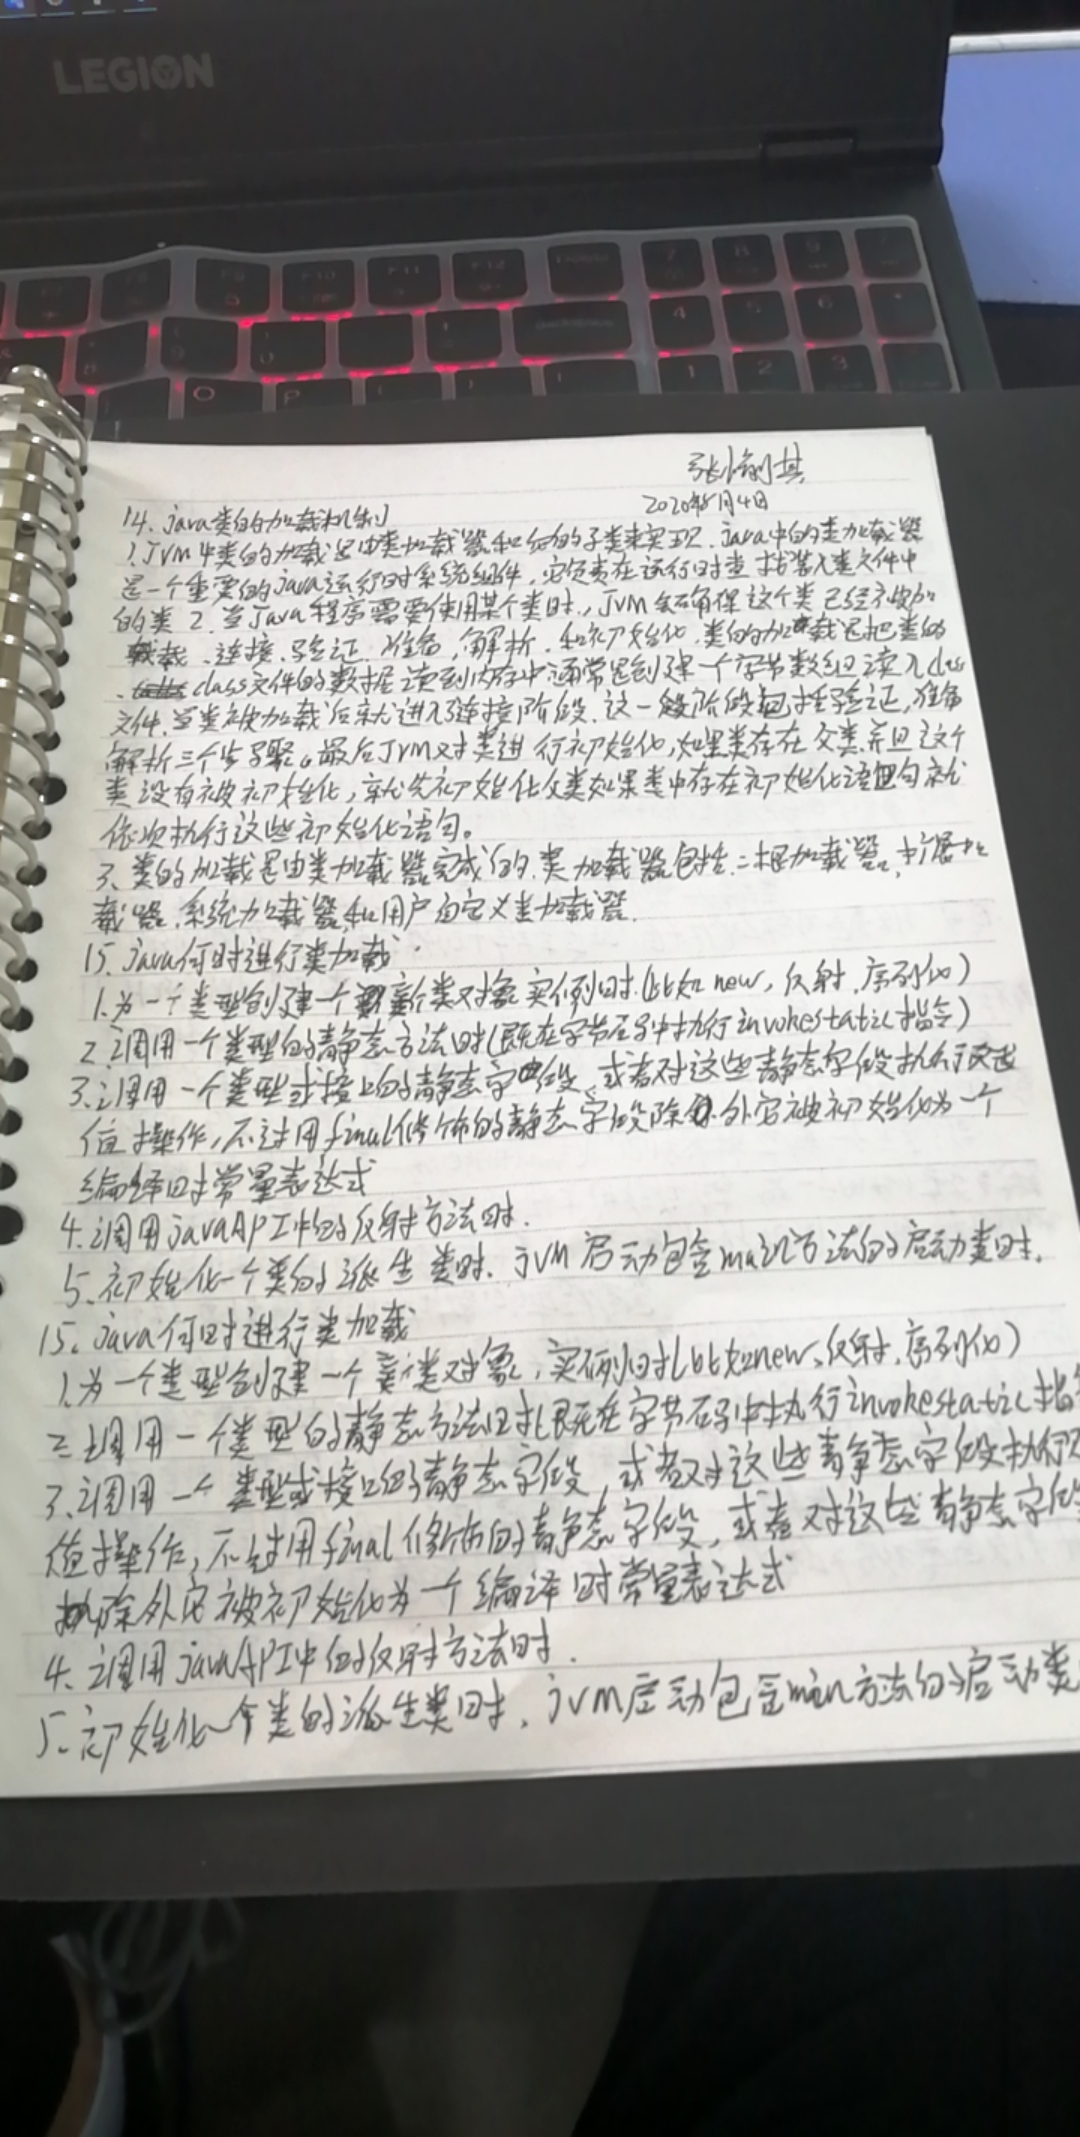 LEGION
F9 F10 F11 F12 Delete 7 8 9
backspace 4 5 6
O P 1 2 3
张
2020年5月4日
14. java类的加载机制
1. JVM中类的加载是由类加载器和他的子类来实现. java中的类加载器
是一个重要的java运行时系统组件,它负责在运行时查找装入类文件中
的类 2. 当Java程序需要使用某个类时, JVM会确保这个类已经被加
载、连接、验证.准备,解析.和初始化.类的加载是把类的
.class文件的数据读到内存中通常是创建一个字节数组读入class
文件.当类被加载后就进入连接阶段.这一段阶段包括验证,准备
解析三个步骤。最后JVM对类进行初始化,如果类存在父类并且这个
类没有被初始化,就先初始化父类如果类中存在初始化语句就
依次执行这些初始化语句。
3、类的加载是由类加载器完成的.类加载器包括:根加载器,扩展加
载器.系统加载器和用户自定义类加载器.
15. java何时进行类加载.
1.为一个类型创建一个新类对象实例时.(比如new,反射.序列化)
2.调用一个类型的静态方法时(既在字节码中执行invokestatic指令)
3.调用一个类型或接口的静态字段、或者对这些静态字段执行
值操作,不过用final修饰的静态字段除外它被初始化为一个
编译时常量表达式
4.调用javaAPI中的反射方法时.
5.初始化一个类的派生类时. jvm启动包含main方法的启动类时.
15. java何时进行类加载
1.为一个类型创建一个类对象,实例时(比如new、反射.序列化)
2.调用一个类型的静态方法时(既在字节码中执行invokestatic指
3.调用一个类型或接口的静态字段,或者对这些静态字段执行
值操作,不过用final修饰的静态字段,或者对这些静态字段
除外它被初始化为一个编译时常量表达式
4.调用javaAPI中的反射方法时.
5.初始化一个类的派生类时. jvm启动包含main方法的启动类